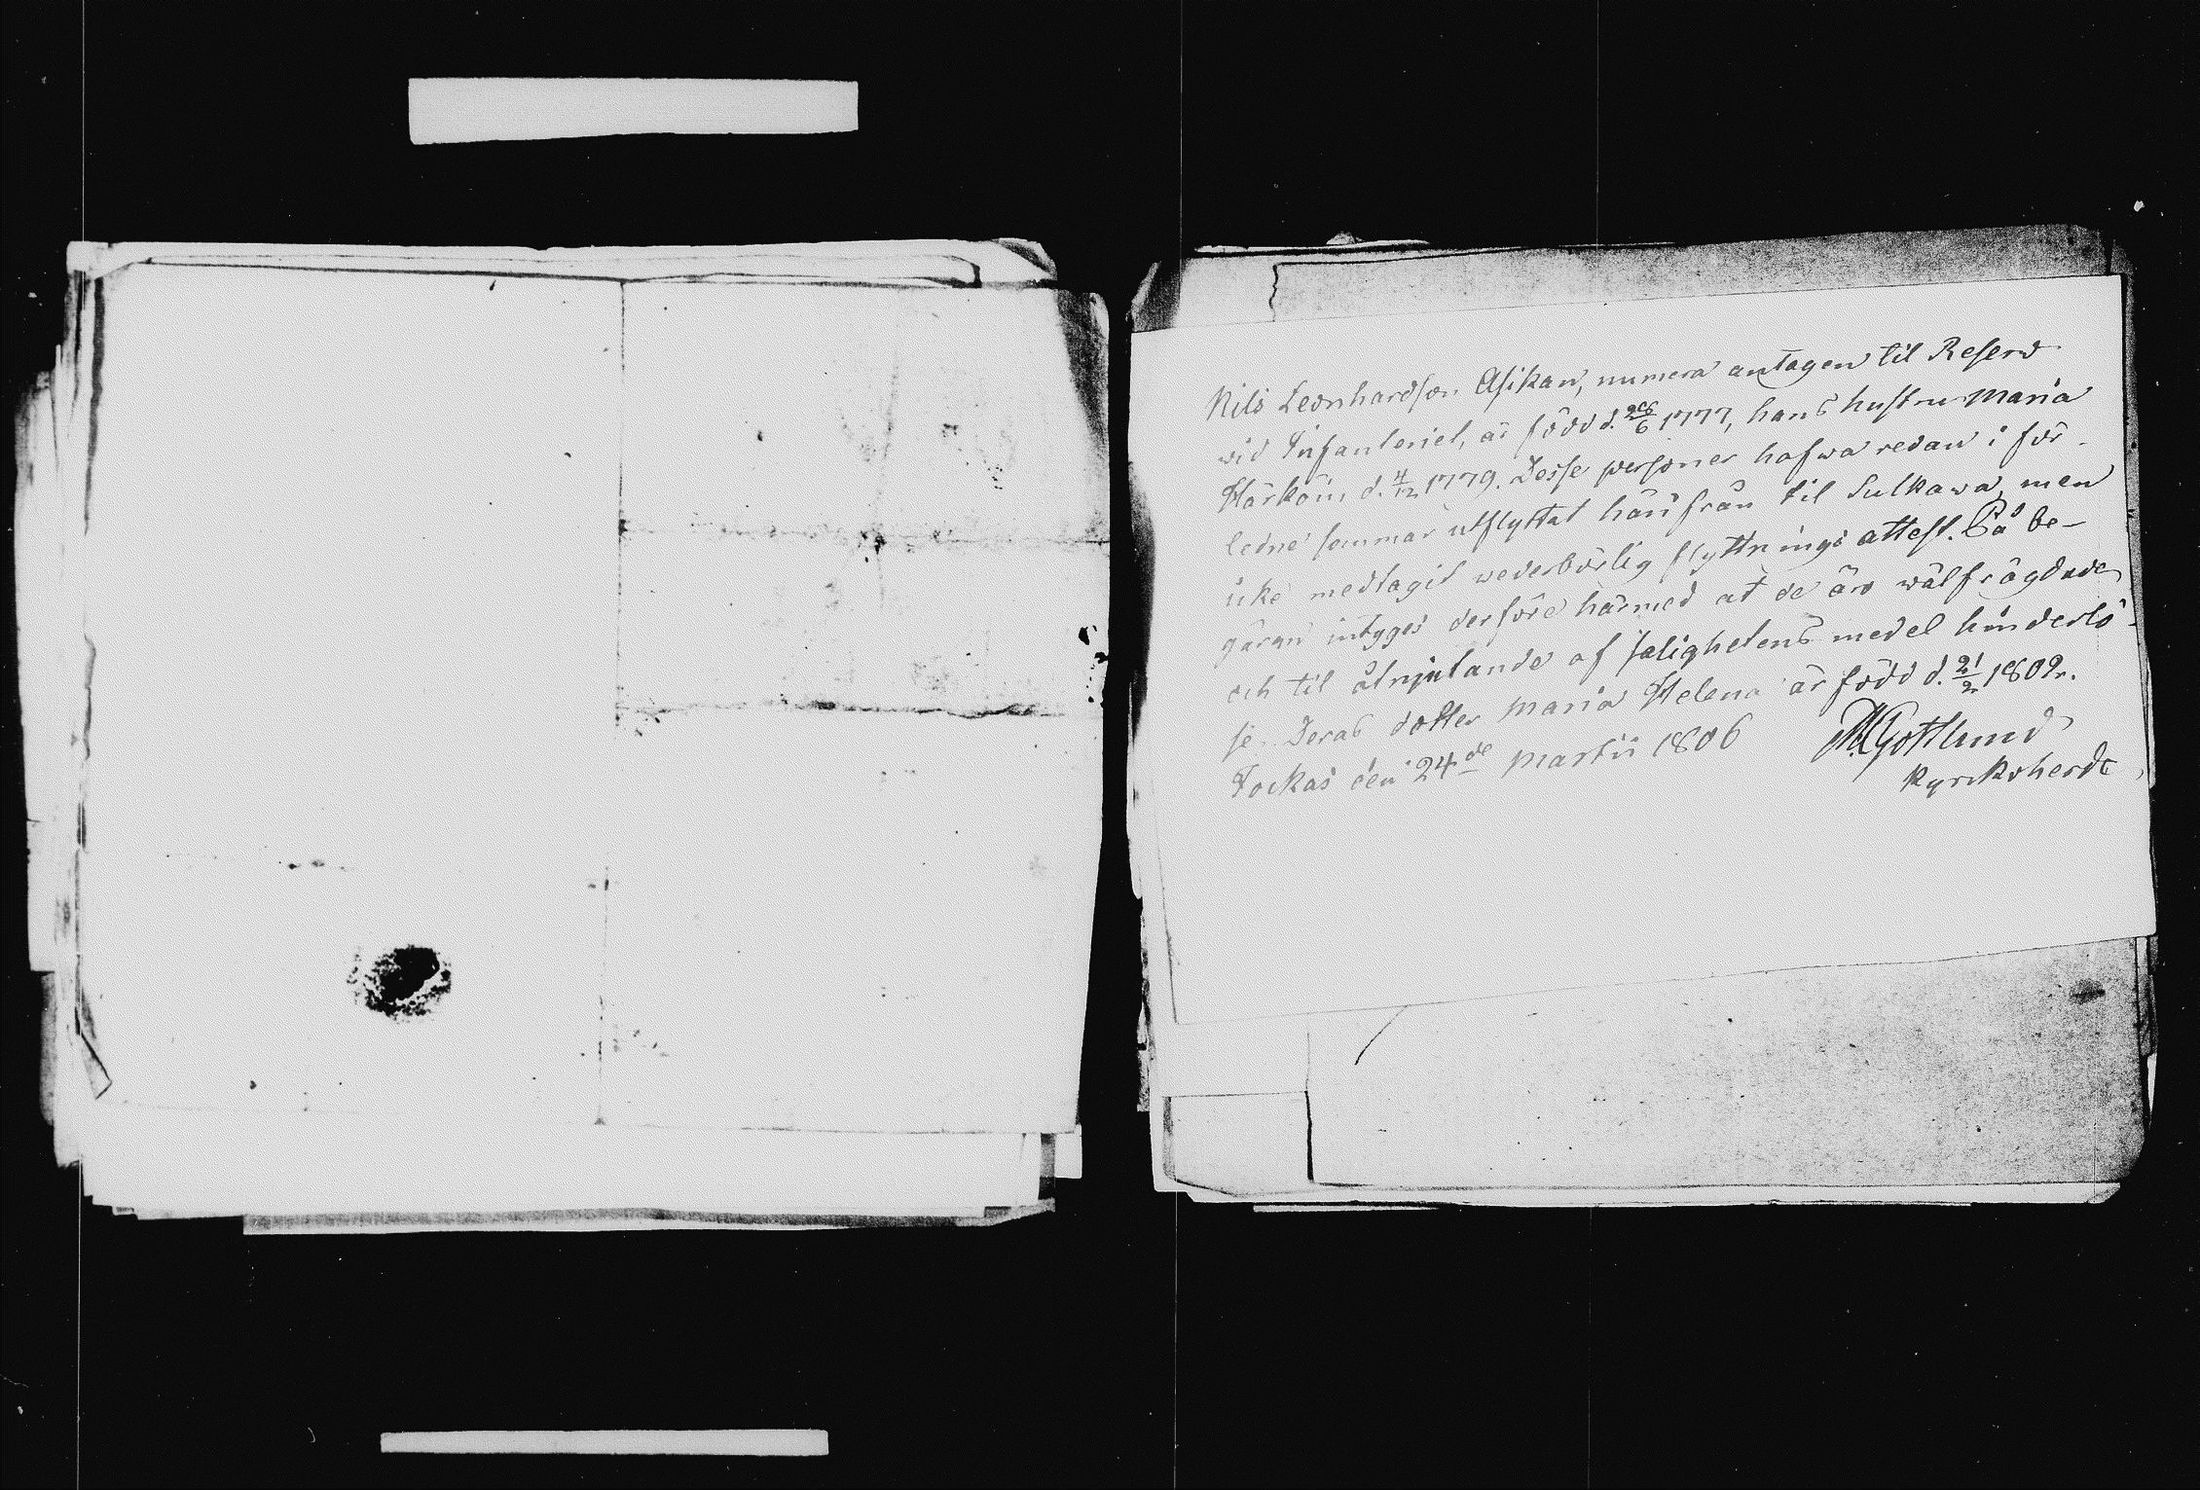 Nils Leonhardson Asikan, numera antagen til Reserv
vid Infanteriet, är född d. 26/6 1777, hans hustru Maria
Härköin d. 4/12 1779. Desse personer hafwa redan i för-
ledne sommar utflyttat härifrån til Sulkawa, men
icke medtagit wederbörlig flyttnings attest. På be-
gäran intyges derföre härmed at de äro wälfrägdade
och til åtnjutande af salighetens medel hinderlö-
se. Deras dotter Maria Helena är född d. 21/2 1802.
Jockas den 24de Martii 1806
M. Gottlund
Kyrckoherde